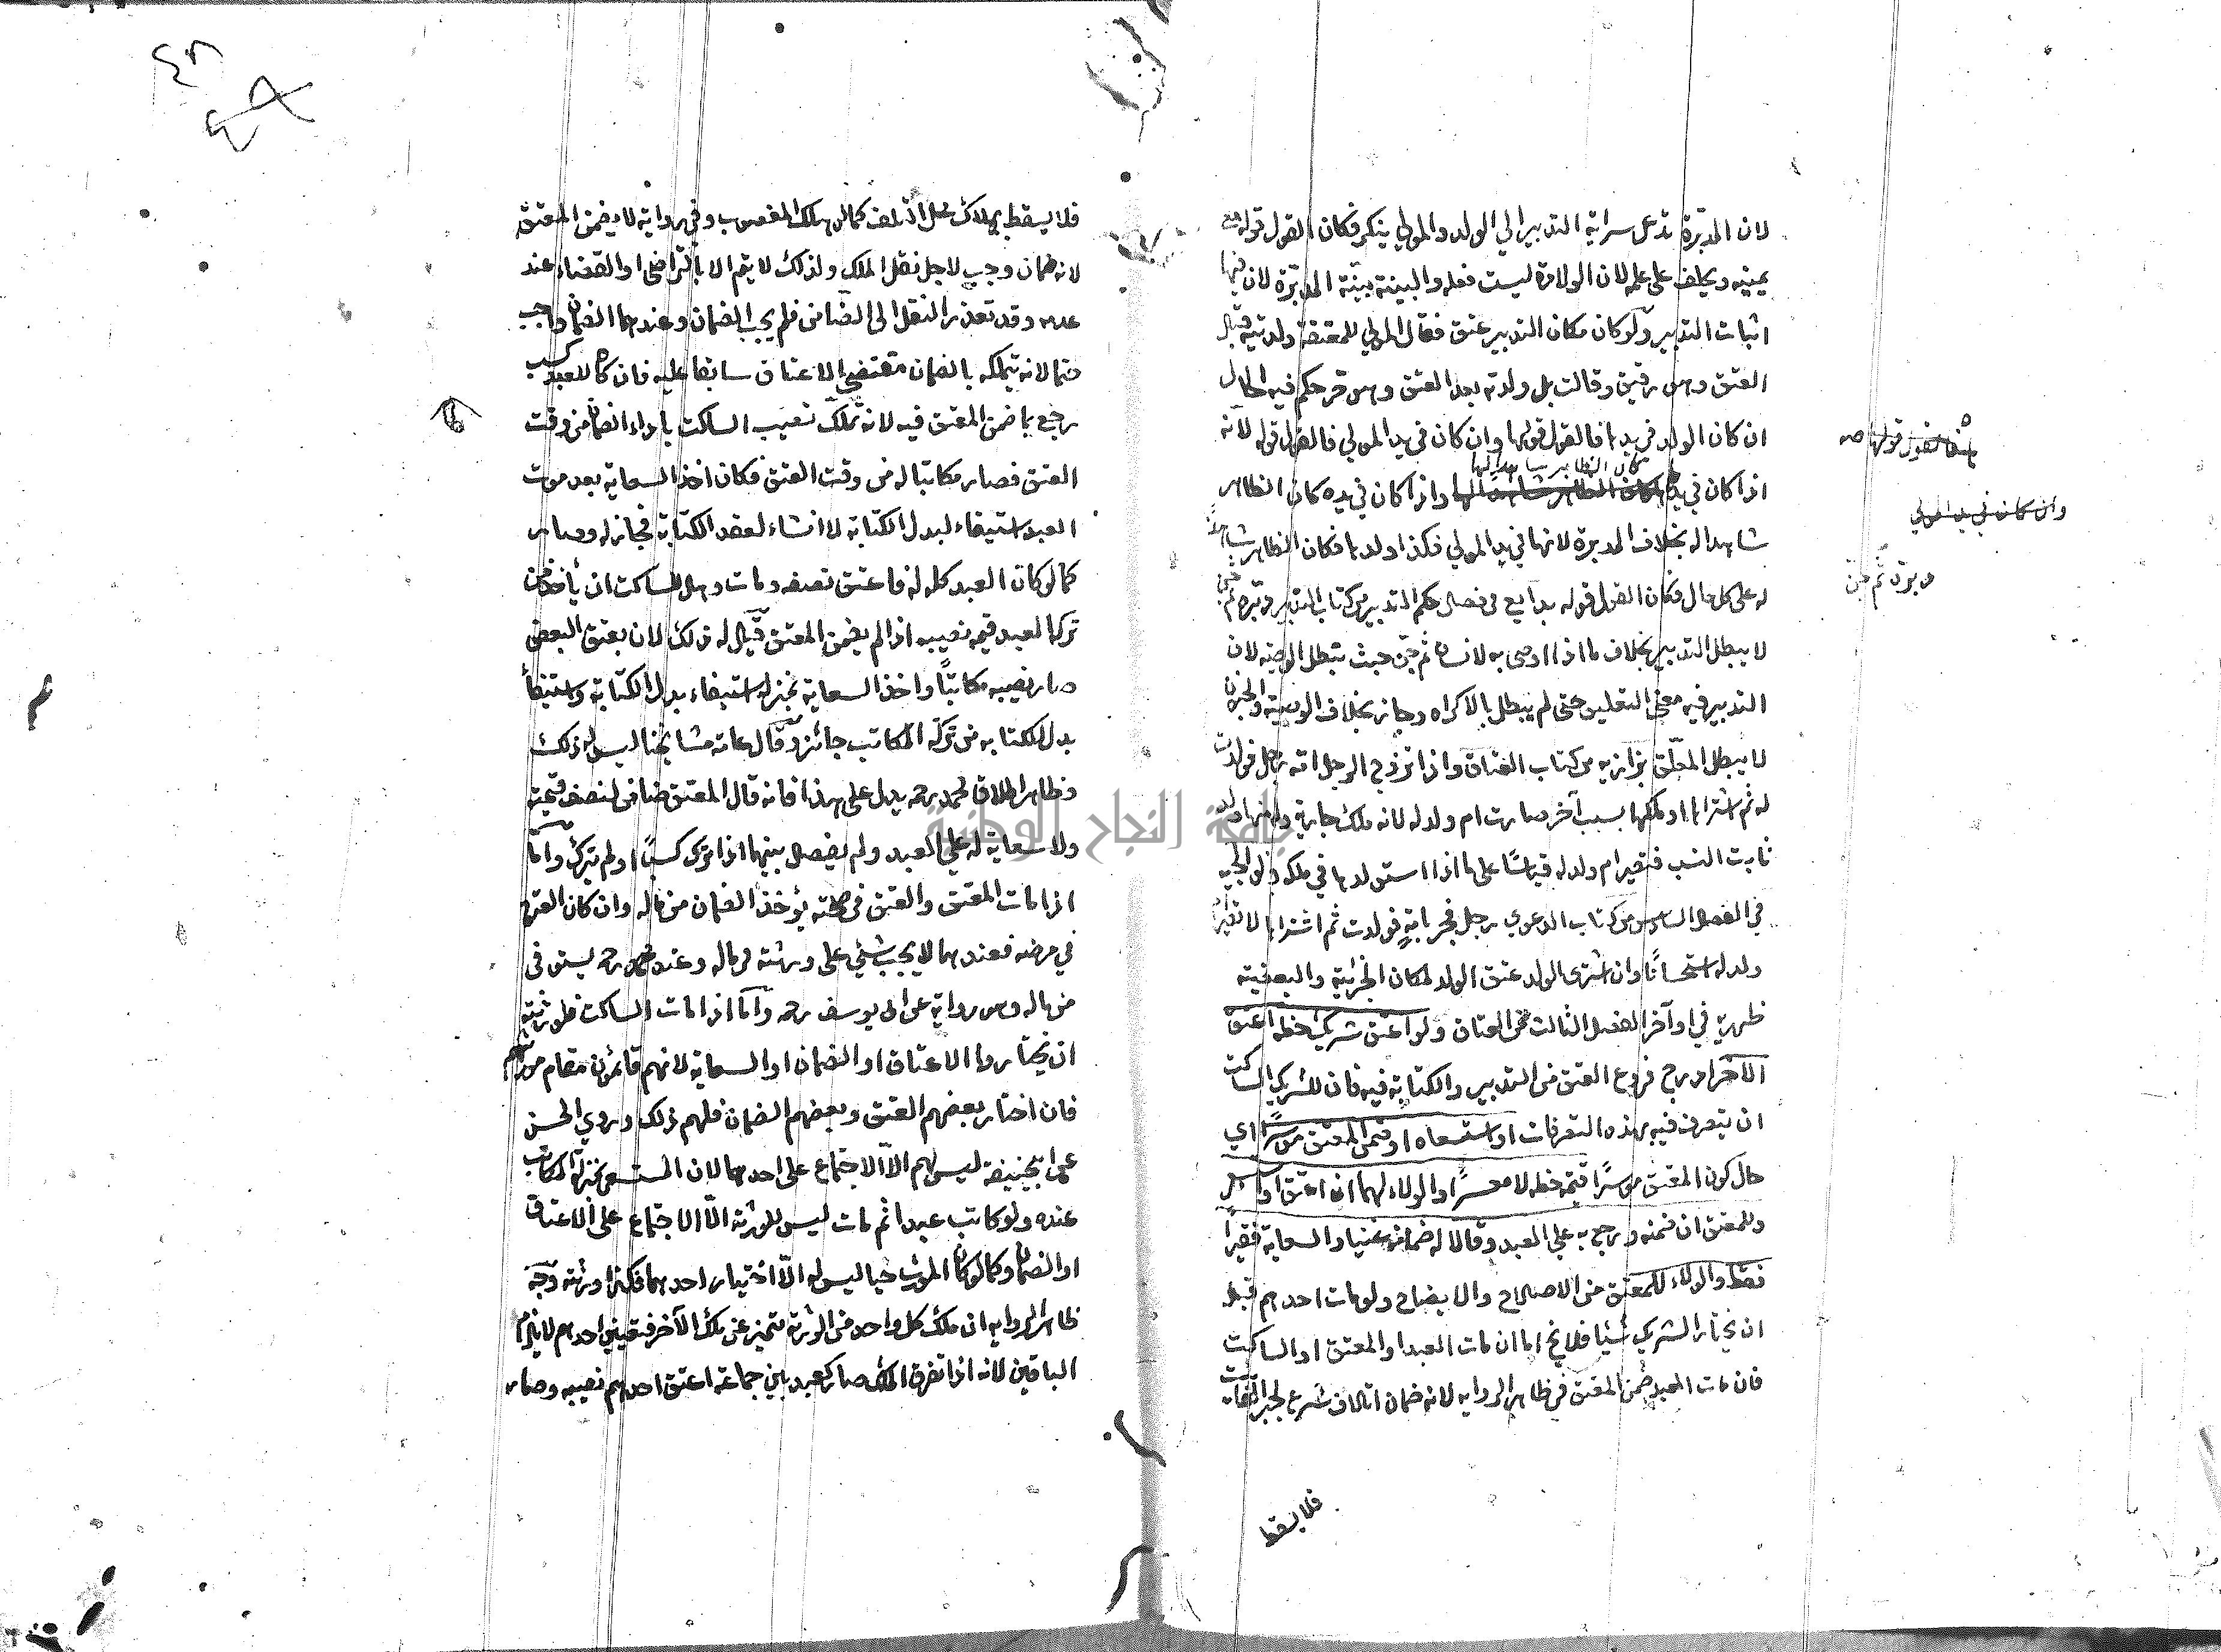 لان المدبّرة تدعي سراية التدبير الي الولد والمولي ينكر فكان القول قوله مع
يمينه ويحلف علي علمه لان الولادة ليست فعله والبينة بيّنة المدبّرة لان فيها
اثبات التدبير ولو كان مكان التدبير عتق فقال المولي للمعتقة ولدتيه قبل
العتق وهو رقيق وقالت بل ولدته بعد العتق وهو حر حكم فيه الحال
ان كان الولد في يدها فالقول قولها وان كان في يد المولي فالقول قوله لانه
كان الظاهر شاهدا لها
اذا كان في يدها واذا كان في يده كان الظاهر
شاهدا له بخلاف المدبرة لانها في يد المولي فكذا ولدها فكان الظاهر شاهدًا
له علي كل حال فكان القول قوله بدايع في فصل حكم التدبير من كتاب التدبير دبّره ثم جنّ
لا يبطل التدبير بخلاف ما اذا اوصى به لانسان ثم جنّ حيث تبطل الوصية لان
التدبير فيه معني التعليق حتي لم يبطل بالاكراه وجاز بخلاف الوصية والجنون
لا يبطل المعلّق بزازيه من كتاب العتاق واذا تزوج الرجل امة رجل فولدت
له ثم اشتراها او ملكها بسبب آخر صارت ام ولد له لانه ملك جارية وله منها ولد
ثابت النسب فتصير ام ولد له قياسًا على ما اذا استولدها في ملكه ولوالجيه
في الفصل السادس من كتاب الدعوي رجل فجر بامةٍ فولدت ثم اشتراها لا تصير ام
ولد له استحسانًا وان اشترى الولد عتق الولد لمكان الجزئية والبعضية
ظهيرية في اوآخر الفصل الثالث من العتاق ولو اعتق شريك حظه اعتق
الآخر او دبر فروع العتق من التدبير والكتابة فيه فان للشريك الساكت
ان يتصرف فيه بهذه التصرفات او استسعاه او ضمن المعتق موسرًا اي
حال كون المعتق موسرًا قيمة حظه لا معسرًا والولاء لهما ان اعتق او استسعى
وللمعتق ان ضمنه ورجع به علي العبد وقالا له ضمانه غنيا والسعاية فقيرًا
فقط والولاء للمعتق من الاصلاح والايضاح ولو مات احدهم قبل
ان يختار الشريك شئيا فلا يخ اما ان مات العبد او المعتق او الساكت
فان مات العبد ضمن المعتق في ظاهر الروايه لانه ضمان اتلاف شرع لجبر الفائت
فلا يسقط
فالقول قولها صه
وان كان في يد المولي
دبره ثم جن
فلا يسقط بهلاك محل التلف كما لو هلك المغصوب وفي رواية لا يضمن المعتق
لانه ضمان وجب لاجل نقل الملك ولذلك لا يتم الا بالتراضي او القضاء عند
عدمه وقد تعذر النقل الى الضامن فلم يجب الضمان وعندهما الضمان واجب
حتما لانه تملكه بالضمان مقتضى الاعتاق سابقا عليه فان كان للعبد كسب
رجع بما ضمن المعتق فيه لانه تملّك نصيب الساكت باداء الضمان من وقت
العتق فصار مكاتبا له من وقت العتق فكان اخذ السعاية بعد موت
العبد استيفاء لبدل الكتابة لا انشاء لعقد الكتابة فجاز له وصار
كما لو كان العبد كله له فاعتق نصفه ومات وهل للساكت ان يأخذ من
تركة العبد قيمه نصيبه اذا لم يضمن المعتق قيل له ذلك لان بعتق البعض
صار نصيبه مكاتبًا واخذ السعاية بمنزلة استيفاء بدل الكتابة واستيفاء
بدل الكتابه من تركة المكاتب جائز وقال عامة مشايخنا ليس له ذلك
وظاهر اطلاق محمد رحمه يدل على هذا فانه قال المعتق ضامن لنصف قيمته
ولا سعاية له علي العبد ولم يفصل بينهما اذا ترك كسبًا او لم يترك وامّا
اذا مات المعتق والعتق في صحته يؤخذ الضمان من ماله وان كان العتق
في مرضه فعندهما لا يجب شئي على ورثته من ماله وعند محمد رحمه يستوفى
من ماله وهو رواية عن ابى يوسف رحمه وامّا اذا مات الساكت فلورثته
ان يختاروا الاعتاق او الضمان او السعاية لانهم قائمون مقام مورثهم
فان اختار بعضهم العتق وبعضهم الضمان فلهم ذلك وروي الحسن
عن ابيحنيفة ليس لهم الّا الاجتماع على احدهما لان المستسعى بمنزلة المكاتب
عنده ولو كاتب عبدا ثم مات ليس للورثة الّا الاجتماع على الاعتاق
او الضمان وكما لو كان المورث حيا ليس له الّا اختيار احدهما فكذا ورثته وجه
ظاهر الروايه ان ملك كل واحد من الورثة متميز عن ملك الآخر فتعيين احدهم لا يلزم
الباقين لانه اذا تفرق الملك صار كعبد بين جماعة اعتق احدهم نصيبه وصار
جامعة النجاح الوطنية